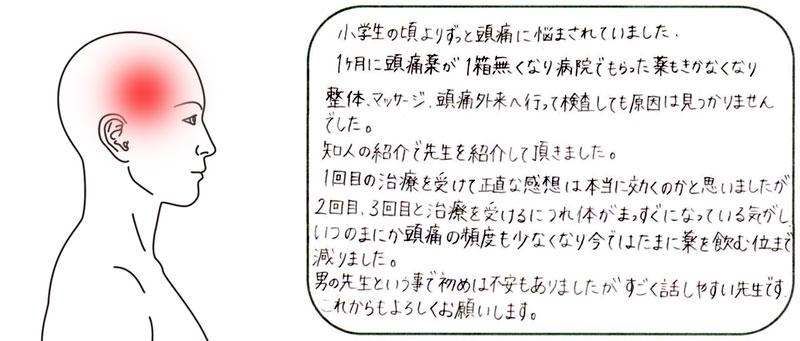 小学生の頃よりずっと頭痛に悩まされていました.
1ヶ月に頭痛薬が1箱無くなり病院でもらった薬もきかなくなり
整体、マッサージ、頭痛外来へ行って検査しても原因は見つかりません
でした。
知人の紹介で先生を紹介して頂きました。
1回目の治療を受けて正直な感想は本当に効くのかと思いましたが
2回目、3回目と治療を受けるにつれ体がまっすぐになっている気がし、
いつのまにか頭痛の頻度も少なくなり今ではたまに薬を飲む位まで
減りました。
男の先生という事で初めは不安もありましたがすごく話しやすい先生です.
これからもよろしくお願いします。